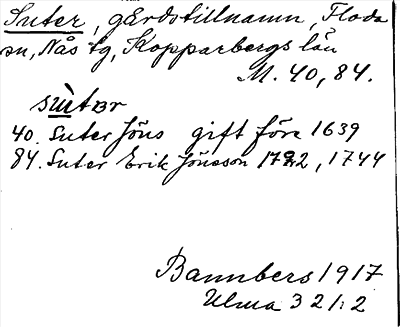 Suter, gårdstillnamn, Floda
sn, Nås tg, Kopparbergs län
M. 40, 84.
sùtər
40. Suter Jöns gift före 1639
84. Suter Erik Jönsson 1722, 1744
Bannbers 1917
Ulma 321:2